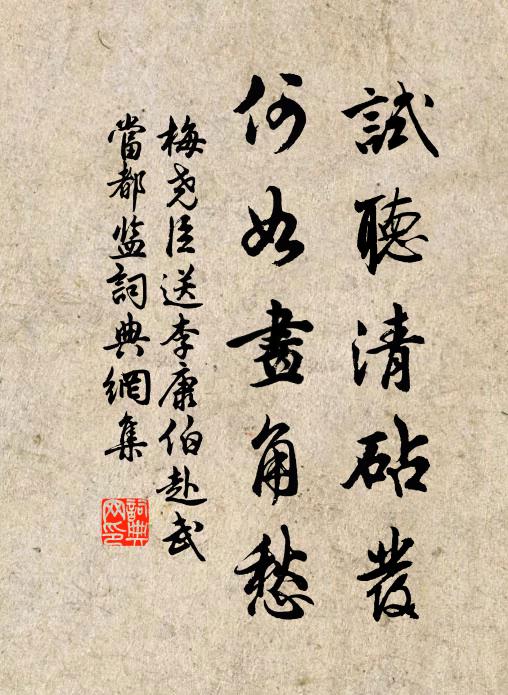 試聽清砧發
何如畫角愁
梅堯臣送李康伯赴武
當都監詞典網集
詞典
网印